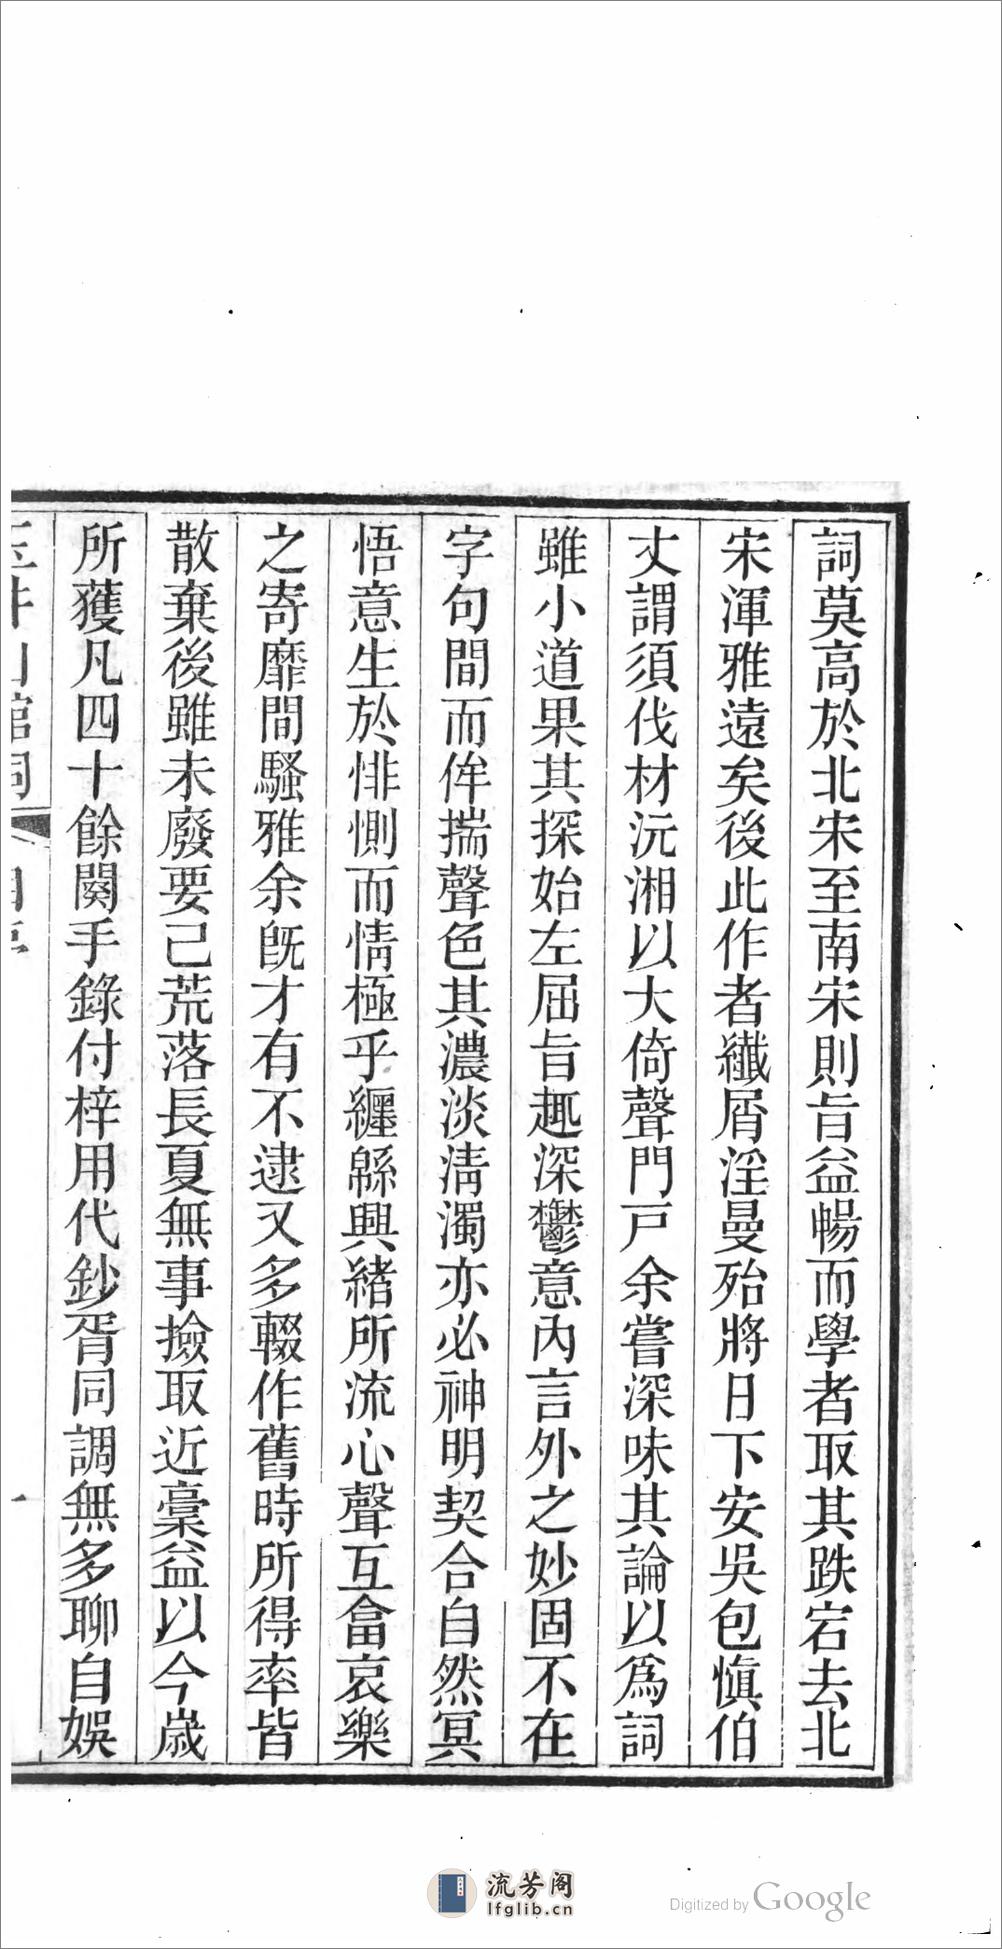 詞莫高於北宋至南宋則旨益暢而學者取其跌宕去北
宋渾雅遠矣後此作者纖屑淫曼殆將日下安吳包愼伯
丈謂須伐材沅湘以大倚聲門戸余嘗深味其論以爲詞
雖小道果其探始左屈旨趣深鬱意內言外之妙固不在
字句間而侔揣聲色其濃淡淸濁亦必神明契合自然冥
悟意生於悱惻而情極乎纒緜興緖所流心聲互畣哀樂
之寄靡間騷雅余旣才有不逮又多輟作舊時所得率皆
散棄後雖未廢要己荒落長夏無事撿取近稾益以今歲
所獲凡四十餘闋手錄付梓用代鈔胥同調無多聊自娛
玉井山館詞
一
流芳阁
lfglib.cn
Digitized by Google